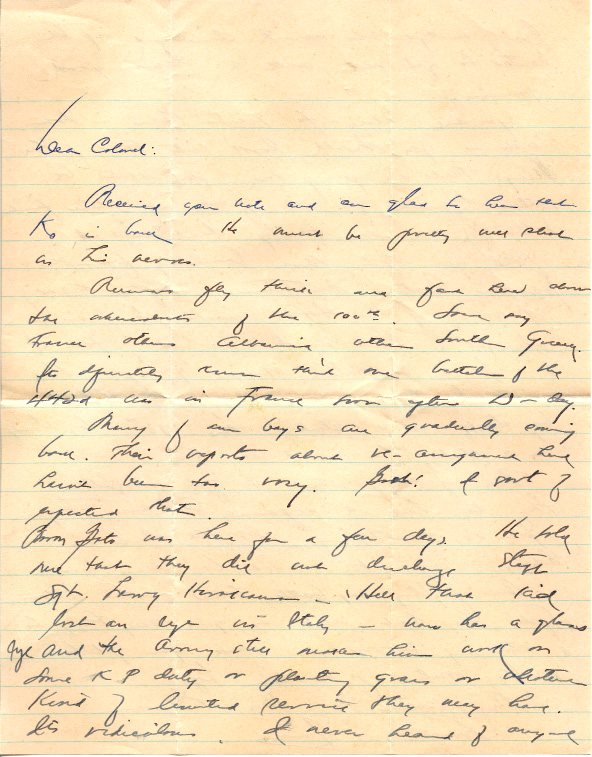 Dear Colonel:
Received your note and am glad to have
Ko is back He must be pretty well shot
as his nerves.
Rumors fly thick and fast here about
the movements of the 100th. Some say
France others Albania others South
definitely one battalion of the
442d was in France soon after D-day.
Many of our boys are gradually coming
back. Their reports about re-assignment here
hasn't been too rosy. Gosh! I sort of
expected that.
was here for a few days. He told
me that they did not discharge Staff
Sgt. - Hell that kid
lost an eye in Italy - now has a glass
eye and the Army still makes him work on
some K P duty or planting grass or whatever
kind of limited service they may have.
It's ridiculous. I never heard of anyone